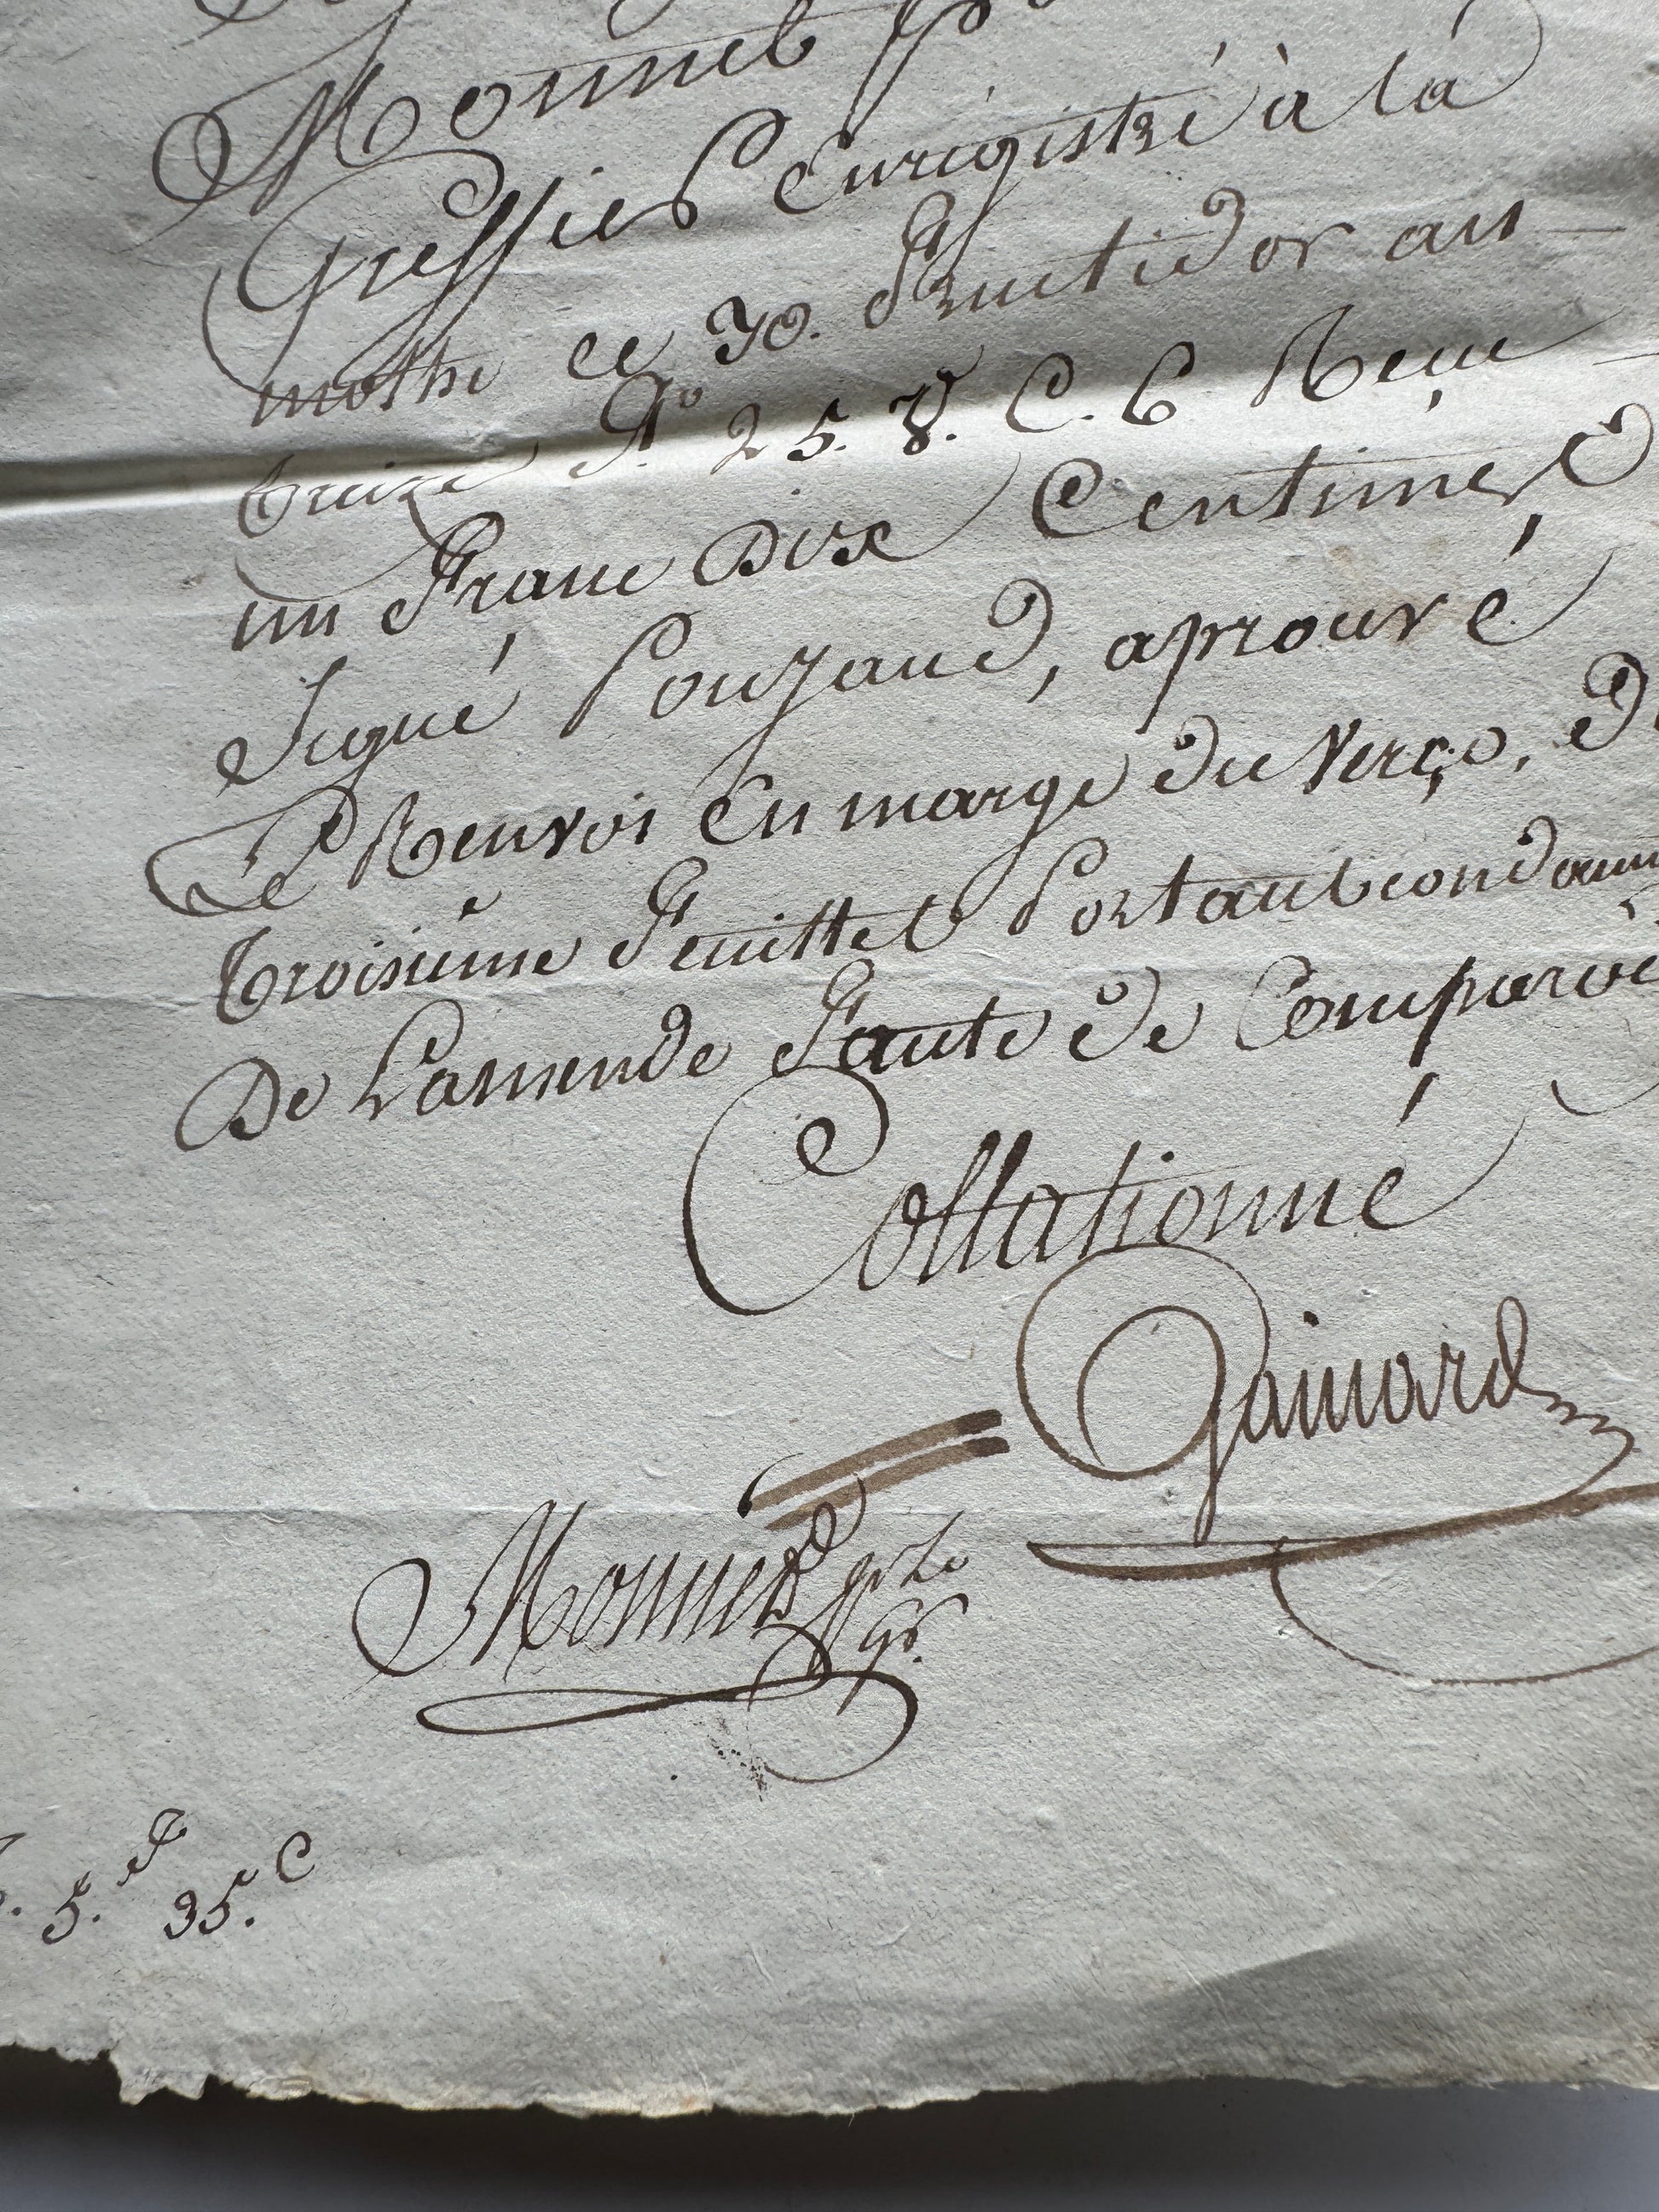 Monnet
Greffier Enrigistré à la
mothe le 30. Fructidor an
treize F.o 25. V. C. 6 Reçu
un Franc Dix Centimes
Signé Poujaud, aprouvé
Le Renvoi En marge du Verço, D
troisième Feuillet Portant condamn
De L'amende Faute de Comparoi
Collationné
Gainard
Monnet
5.F 35.C